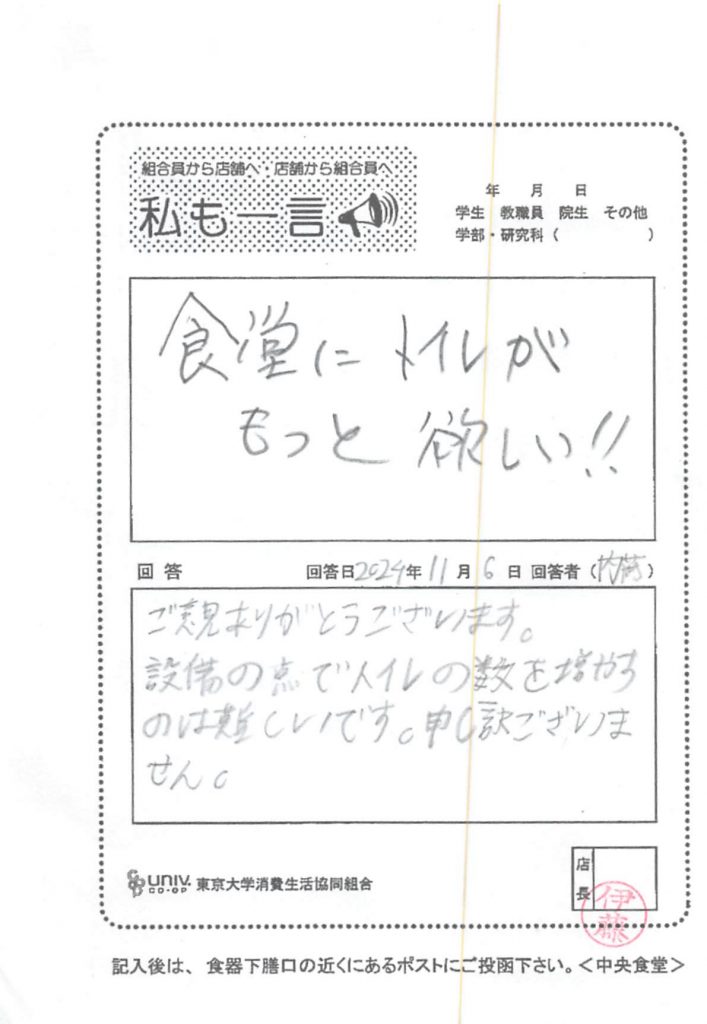 組合員から店舗へ・店舗から組合員へ
私も一言
年 月 日
学生 教職員 院生 その他
学部・研究科 ( )
食堂に トイレが
もっと 欲しい!!
回答 回答日2024年11月6日 回答者(内藤)
ご意見ありがとうございます。
設備の点でトイレの数を増やす
のは難しいです。申し訳ございま
せん。
UNIV. CO-OP 東京大学消費生活協同組合
店長
伊藤
記入後は、食器下膳口の近くにあるポストにご投函下さい。<中央食堂>